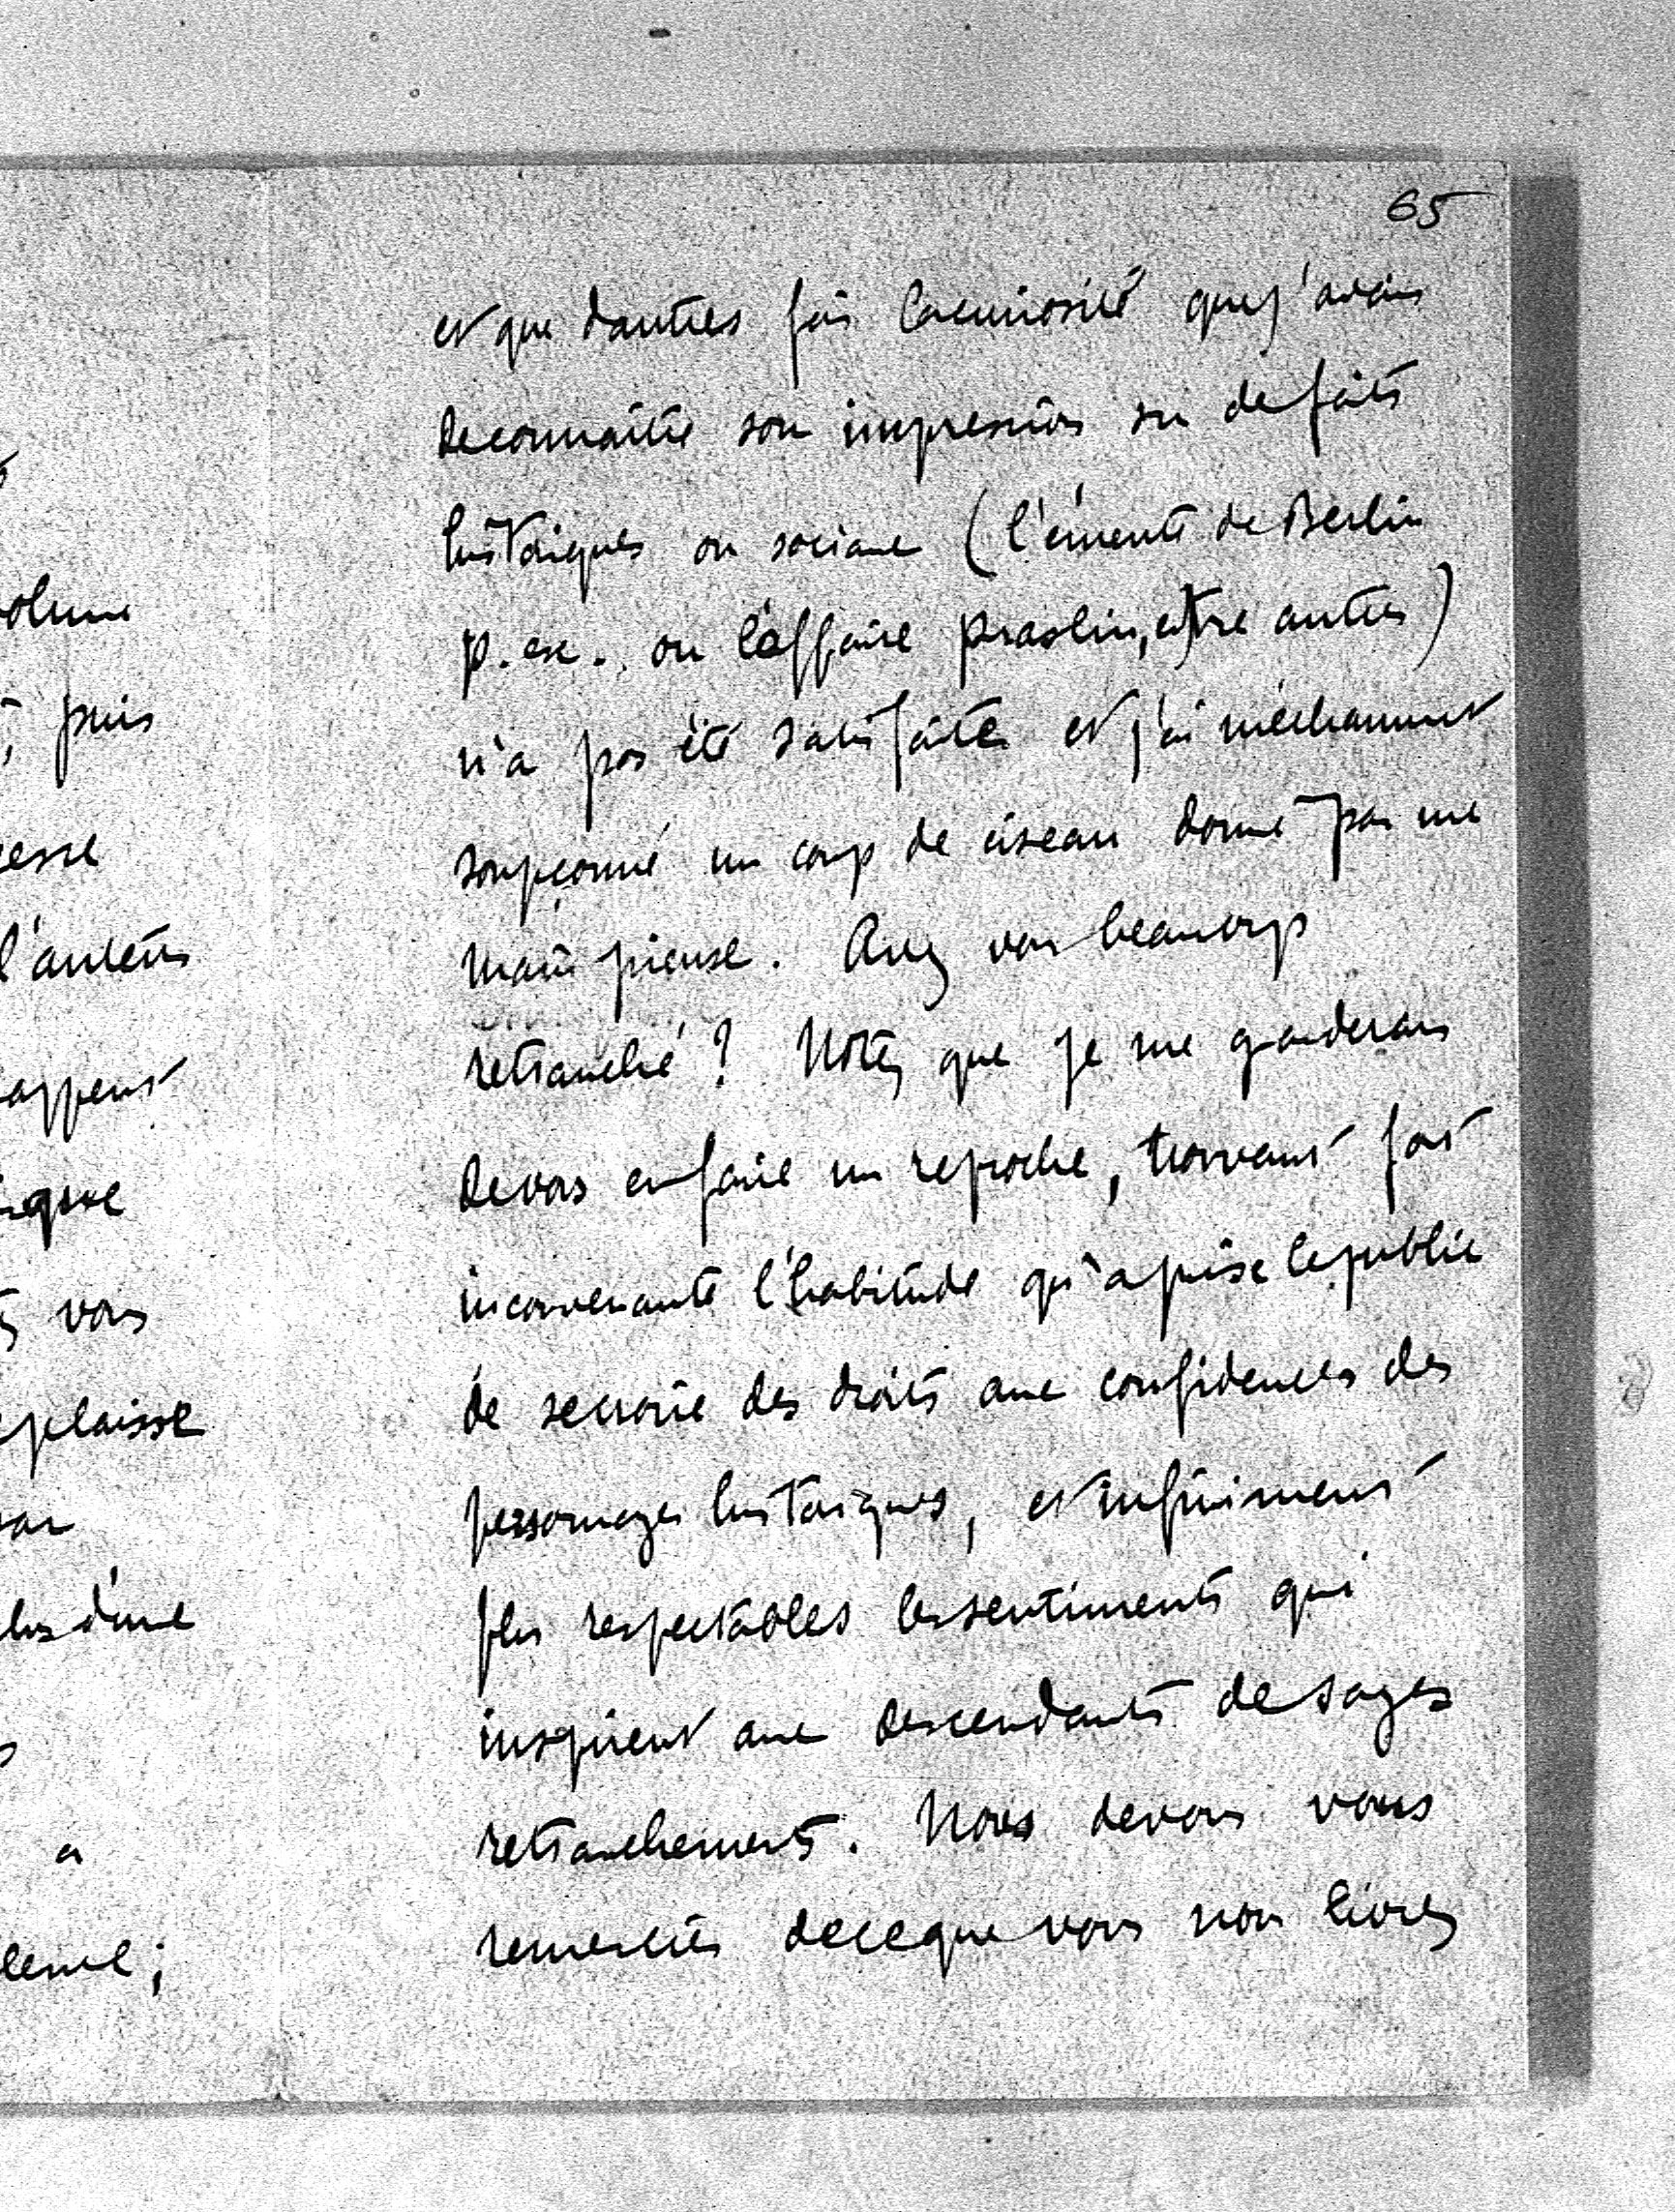 65
et que d'autres fois la curiosité que j'avais
de connaître son impression sur de faits
historiques ou sociaux (l'émeute de Berlin
p. ex. ou l'affaire Praslin, entre autres)
n'a pas été satisfaite et j'ai méchamment
soupçonné un coup de ciseau donné par une
main pieuse. Avez vous beaucoup
retranché ? Notez que je me garderais
de vous en faire un reproche, trouvant fort
inconvenante l'habitude qu'a prise le public
de se croire des droits aux confidences des
personnages historiques, et infiniment
plus respectables les sentiments qui
inspirent aux descendants de sages
retranchements. Nous devons vous
remercier de ce que vous nous livrez
volume
puis
l'auteur
vous
plaisse
plus d'une
a